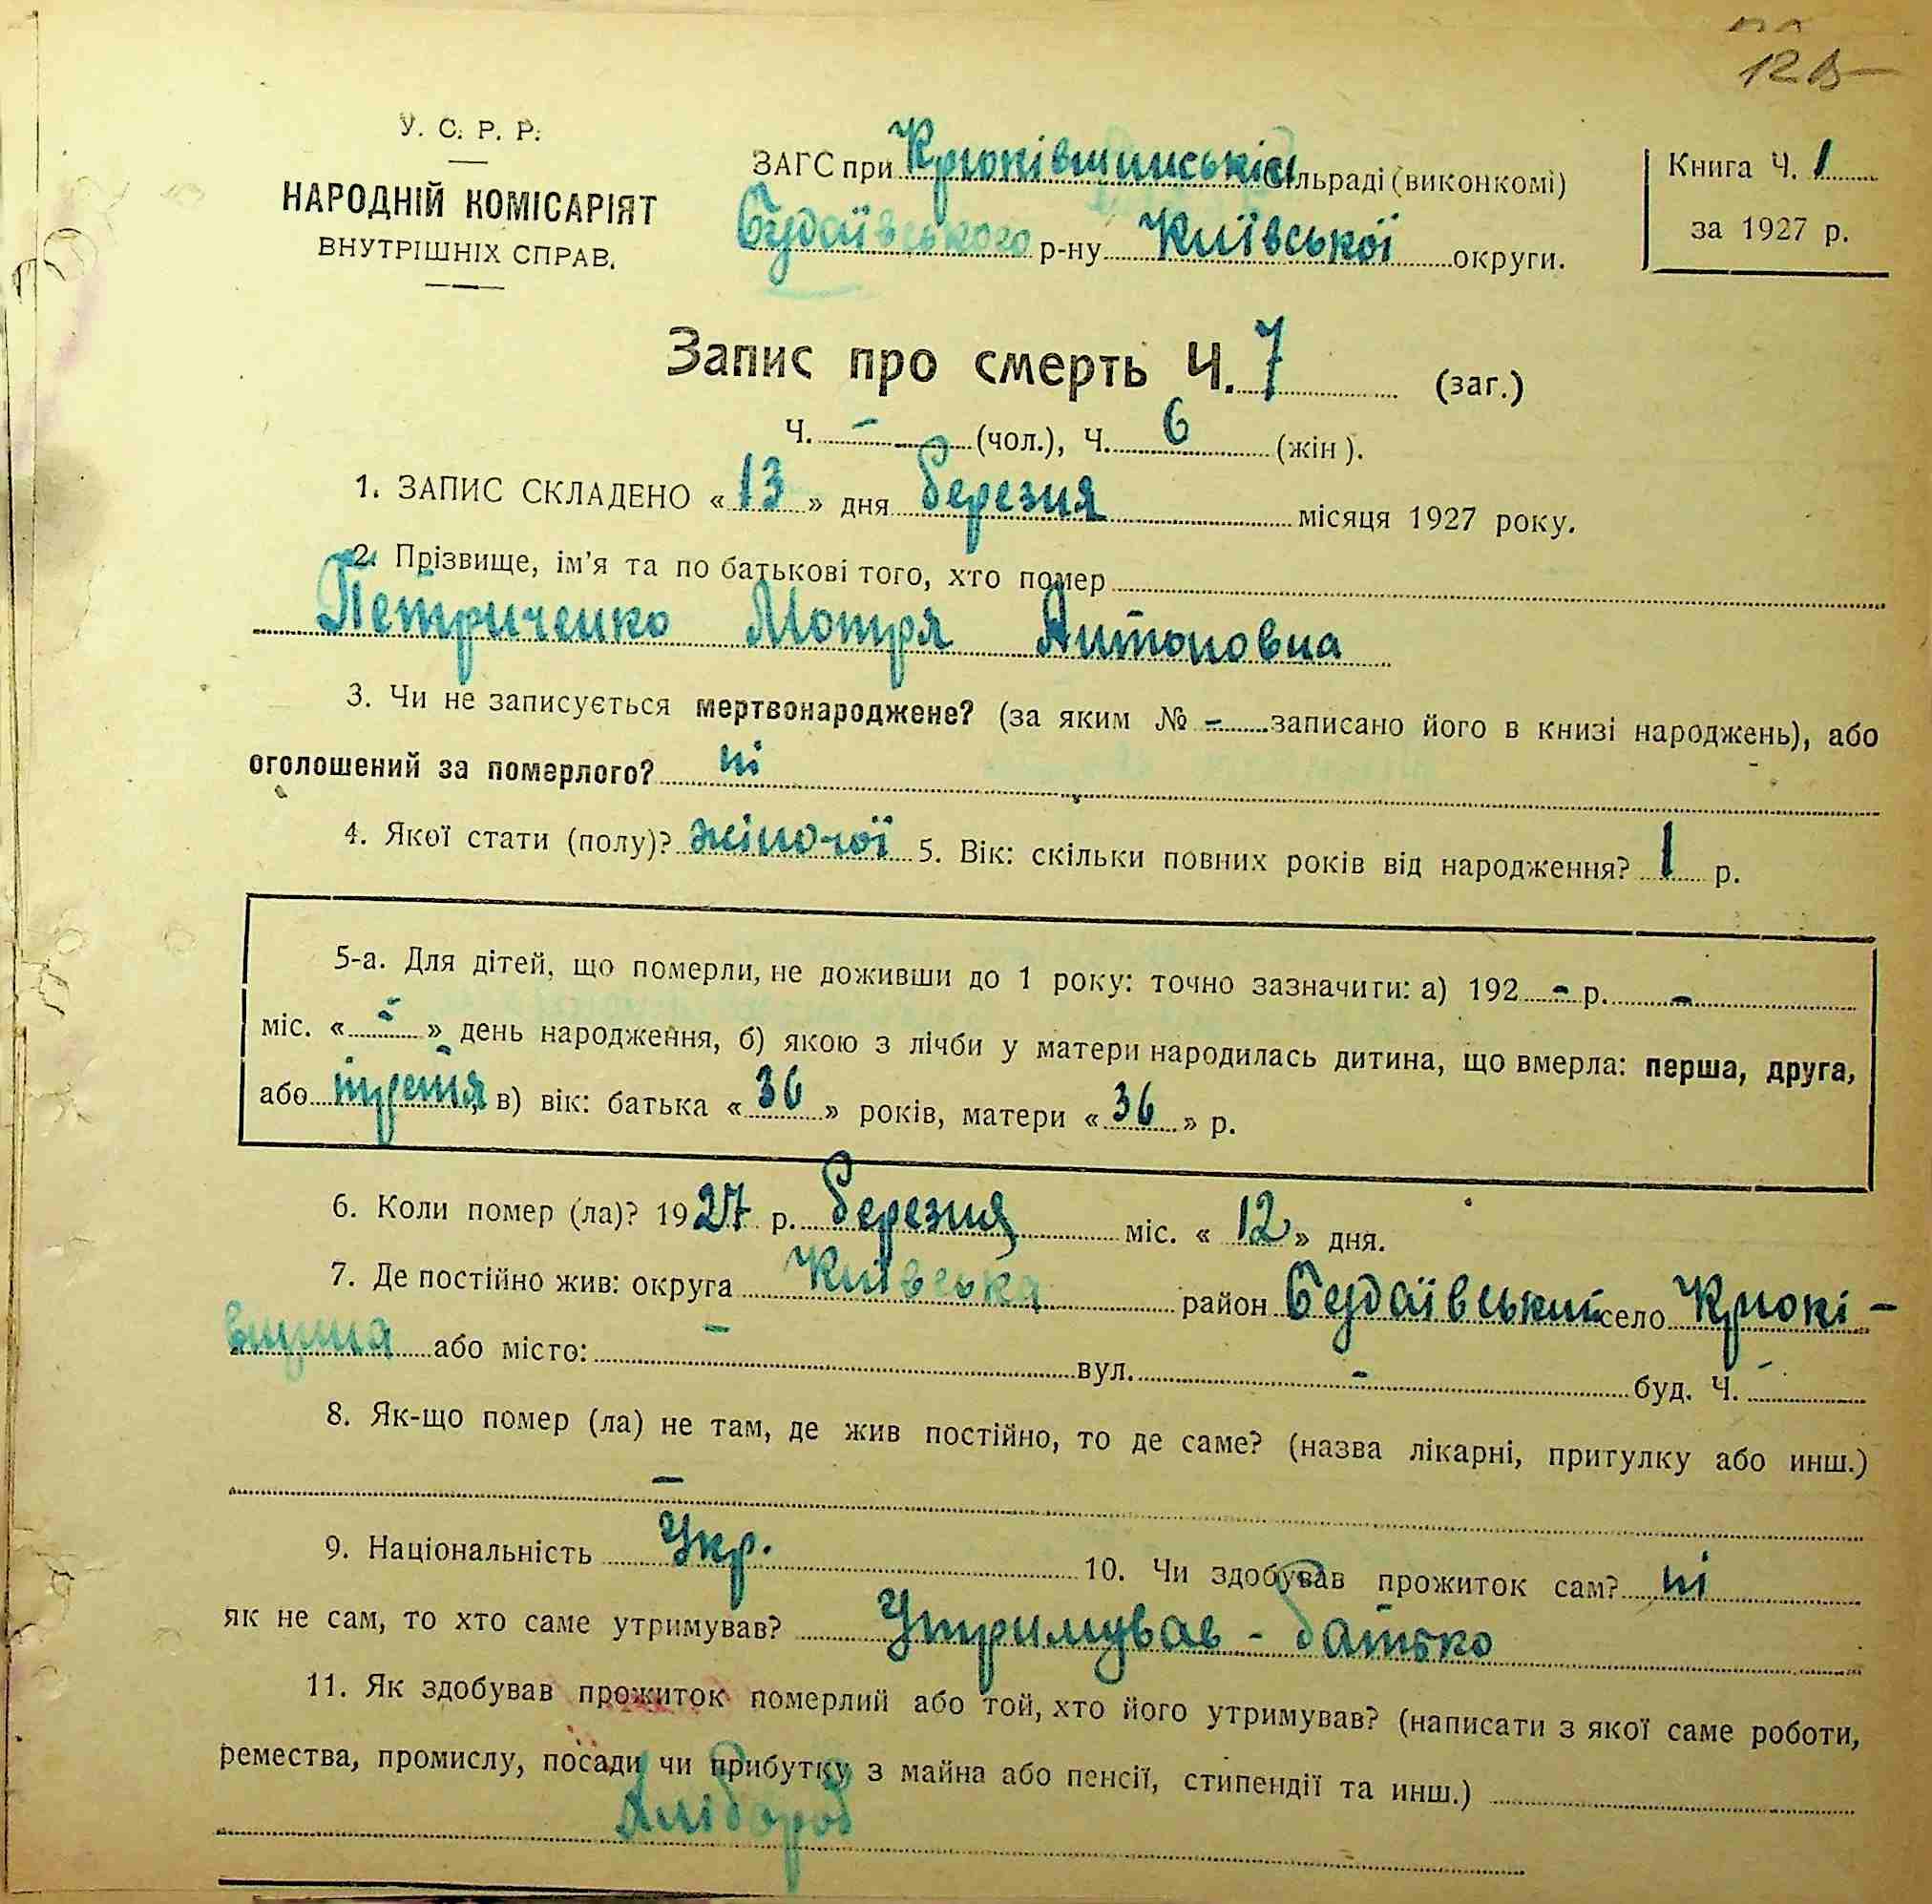 12
У. С. Р. Р.
НАРОДНІЙ КОМІСАРІЯТ
ВНУТРІШНІХ СПРАВ.
ЗАГС при Крюківщинській сільраді (виконкомі)
Будаївського р-ну Київської округи.
Книга Ч. 1
за 1927 р.
Запис про смерть Ч. 7 (заг.)
Ч. - (чол.), Ч. 6 (жін).
1. ЗАПИС СКЛАДЕНО «13» дня березня місяця 1927 року.
2. Прізвище, ім'я та по батькові того, хто помер
Петриченко Мотря Антоновна
3. Чи не записується мертвонароджене? (за яким № - записано його в книзі народжень), або
оголошений за померлого? ні
4. Якої стати (полу)? жіночої 5. Вік: скільки повних років від народження? 1 р.
5-а. Для дітей, що померли, не доживши до 1 року: точно зазначити: а) 192 - р. -
міс. « - » день народження, б) якою з лічби у матери народилась дитина, що вмерла: перша, друга,
або третя в) вік: батька «36» років, матери «36» р.
6. Коли помер (ла)? 1927 р. березня міс. «12» дня.
7. Де постійно жив: округа Київська район Будаївський село Крюкі-
вщина або місто: - вул. - буд. Ч. -
8. Як-що помер (ла) не там, де жив постійно, то де саме? (назва лікарні, притулку або инш.)
-
9. Національність Укр. 10. Чи здобував прожиток сам? ні
як не сам, то хто саме утримував? Утримував - батько
11. Як здобував прожиток померлий або той, хто його утримував? (написати з якої саме роботи,
ремества, промислу, посади чи прибутку з майна або пенсії, стипендії та инш.)
Хлібороб